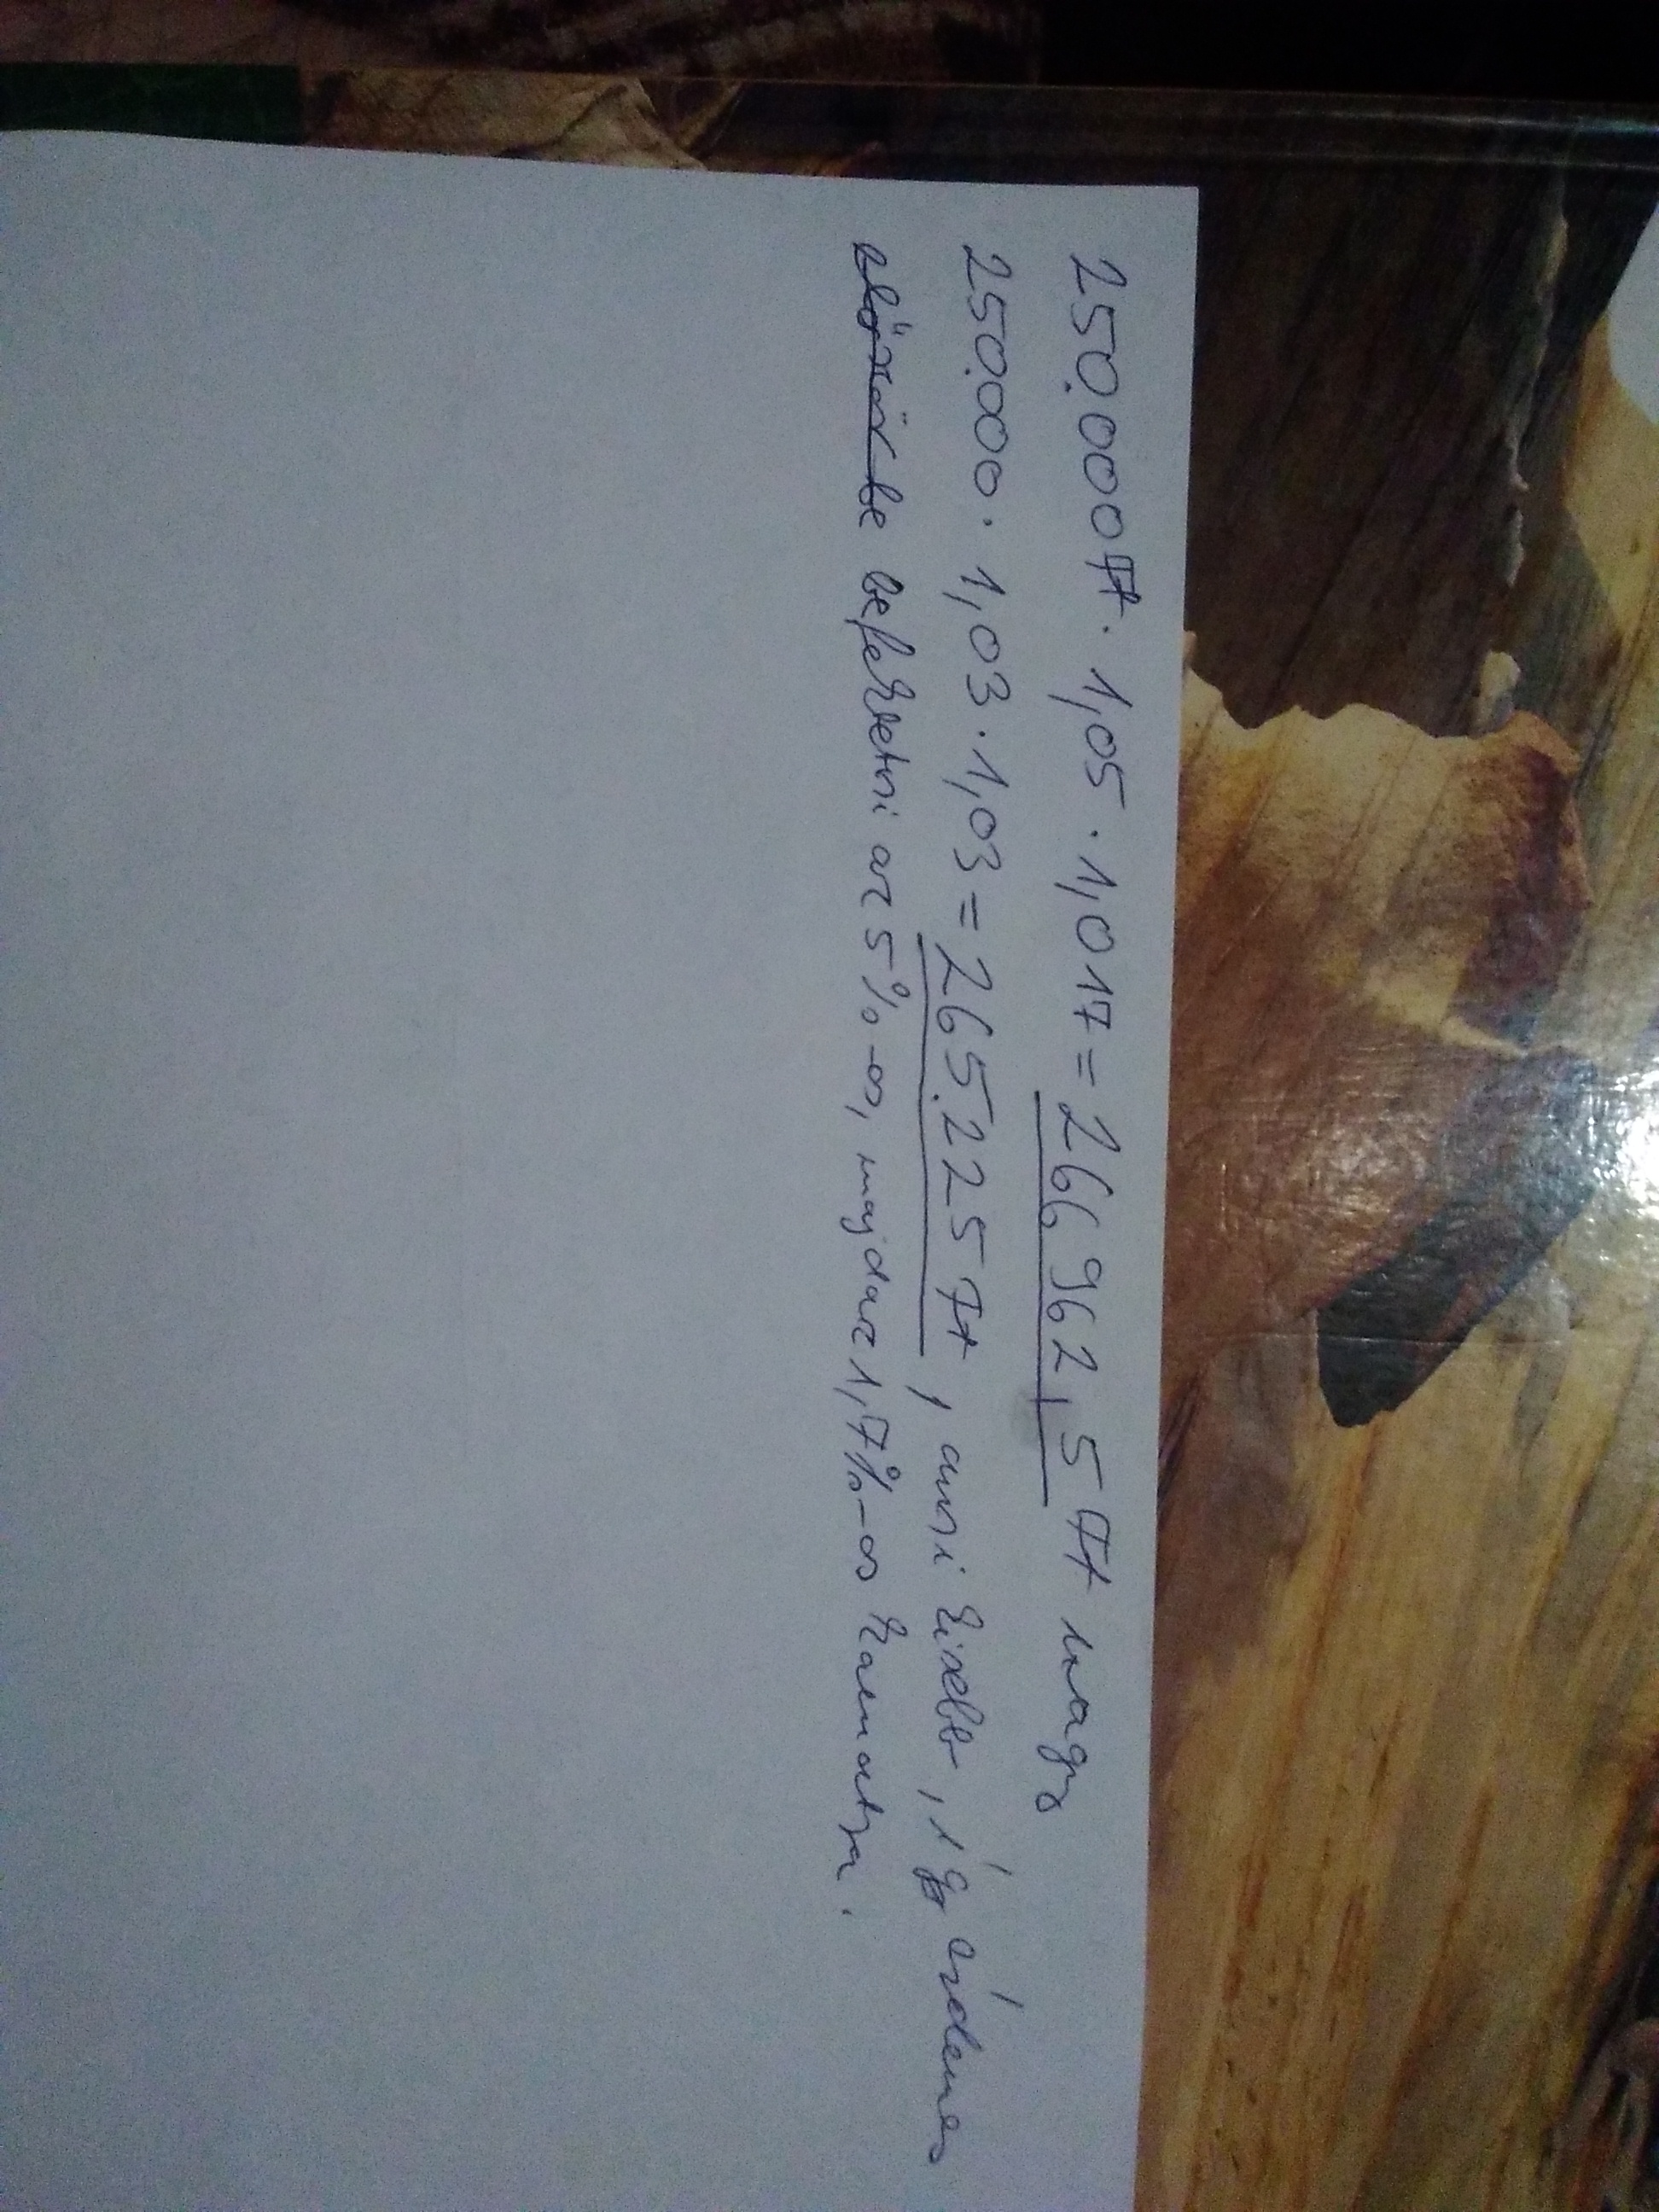 250.000Ft · 1,05 · 1,017 = 266 962,5 Ft nagy
250.000 · 1,03 · 1,03 = 265.225 Ft, ami kisebb, így érdemes
először be befektetni az 5%-os, majd az 1,7%-os kamatra.